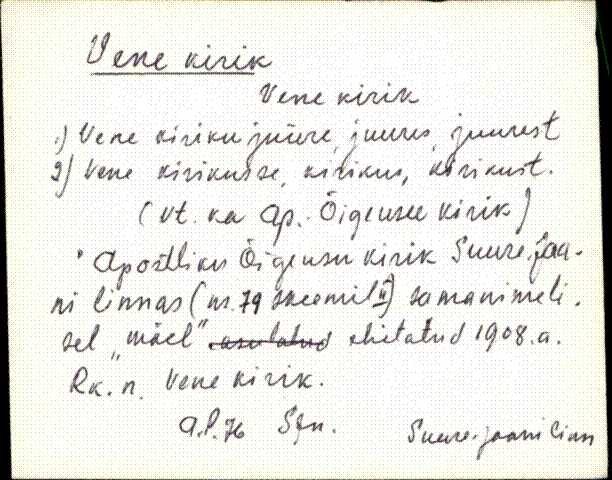 Vene kirik
Vene kirik
1) Vene kiriku juure, juures, juurest
2) Vene kirikusse, kirikus, kirikust.
(Vt. ka Ap. Õigeusu kirik)
Apostliku Õigeusu kirik Suure-Jaa-
ni linnas (nr. 79 skeemil II) samanimeli-
sel "mäel" asutatud ehitatud 1908. a.
Rk. n. Vene kirik.
A.P. 76 SJn. Suure-Jaani linn